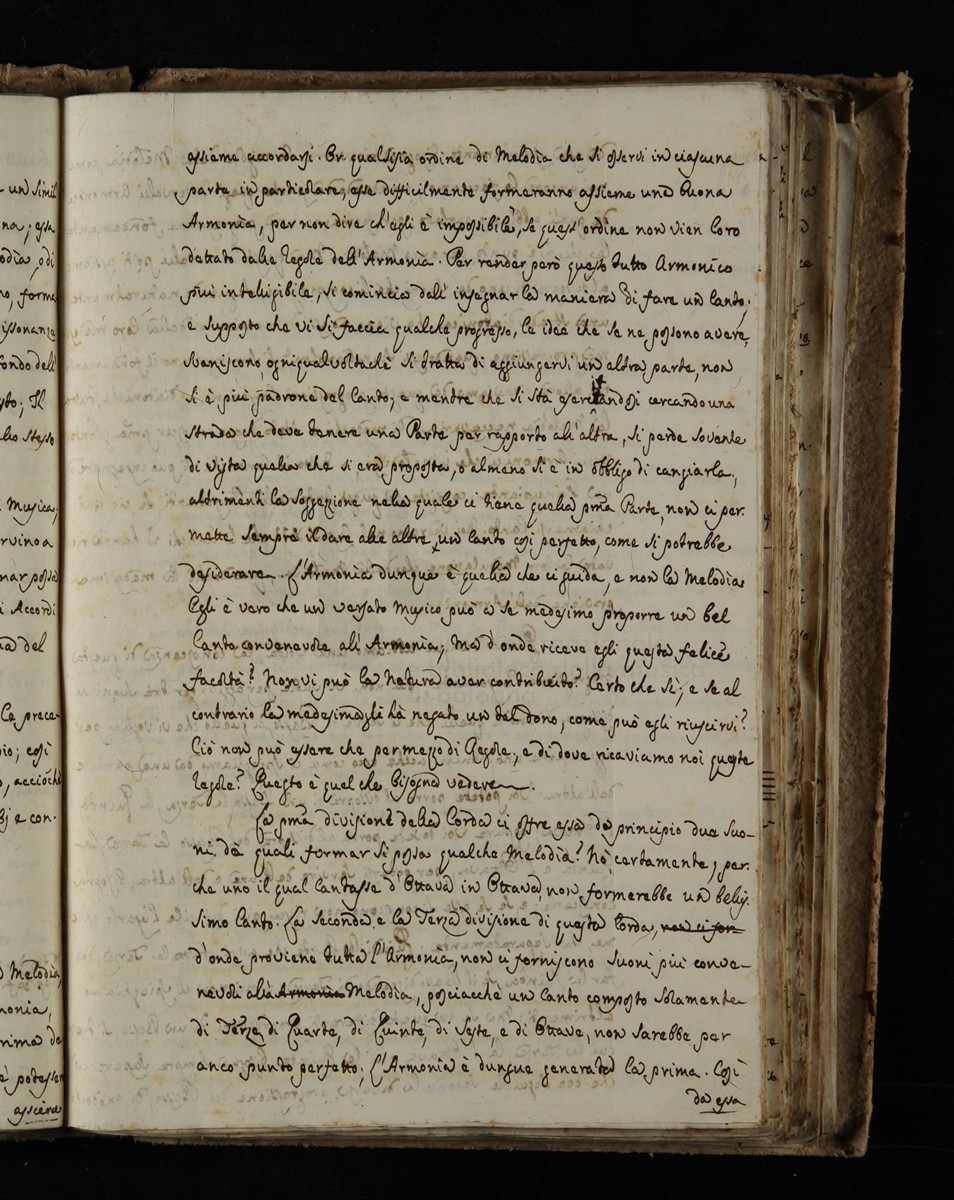 assieme accordarsi. Or qualsisia ordine di Melodìa che si osservi in ciascuna
parte in particolare, esse difficilmente formeranno assieme una buona
Armonìa, per non dire ch'egli è impossibile, se quest'ordine non vien loro
dettato dalle Regole dell'Armonìa. Per render però questo tutto Armonico
più inteligibile, si comincia dall'insegnar la maniera di fare un Canto;
e supposto che vi si faccia qualche progresso, le idea che se ne possono avere,
svaniscono ogniqualvoltachè si tratta di aggiungervi un altra parte, non
si è più padrone del Canto; e mentre che si stà esercitandosi cercando una
strada che deve tenere una Parte per rapporto all'altra, si perde sovente
di vista quella che si era proposta, o almeno si è in obbligo di cangiarla,
altrimenti la soggezione nella quale ci tiene quella pma Parte, non ci per-
mette sempre il dare alle altre un Canto così perfetto, come si potrebbe
desiderare. L'Armonìa dunque è quella che ci guida, e non la Melodìa
Egli è vero che un versato Musico può a se medesimo proporre un bel
Canto convenevole all'Armonìa; Ma d'onde riceve egli questa felice
facoltà? Non vi può la Natura aver contribuito? Certo che sì; e se al
contrario la medesima gli hà negato un tal dono, come può egli riuscirvi?
Ciò non può essere che per mezzo di Regole; e di dove ricaviamo noi queste
Regole? Questo è quel che bisogna vedere.
La pma divisione della Corda ci offre essa da principio due Suo-
ni, da quali formar si possa qualche Melodìa? Nò certamente; per-
che uno il qual Cantasse d'Ottava in Ottava, non formerebbe un belis-
simo Canto. La Seconda, e la Terza divisione di questa Corda, non ci for
d'onde proviene tutta l'Armonìa, non ci forniscono Suoni più conve-
nevoli alla Armonia Melodìa, posciacchè un Canto composto solamente
di Terze, di Quarte, di Quinte, di Seste, e di Ottave, non sarebbe per
anco punto perfetto; L'Armonìa è dunque generata la prima. Così
da essa
- un simil
na; essa
odìa, o di
no, forma
issonanze
fondo dell
sto; Il
llo stesso
Musica,
rvino a
nar possa
i Accordi
ia del
La prece-
io; così
o, acciòche
e con-
Melodìa,
monìa,
rima de
e potesser
assieme